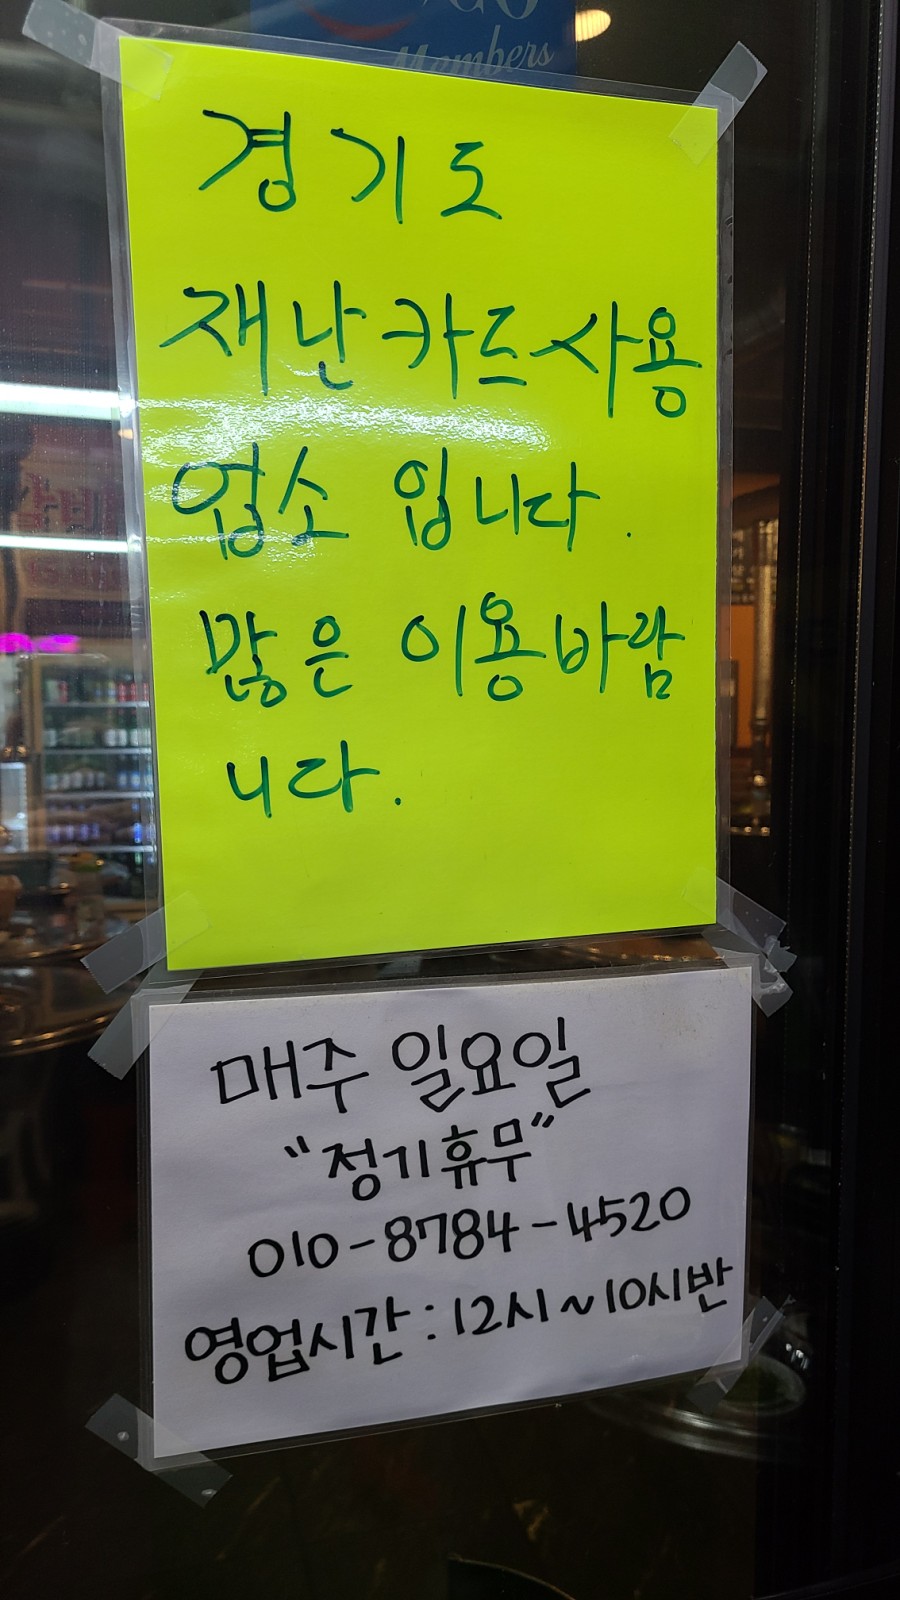 Members
경기도
재난카드사용
업소 입니다.
많은 이용바람
니다.
매주 일요일
"정기휴무"
010-8784-4520
영업시간:12시~10시반